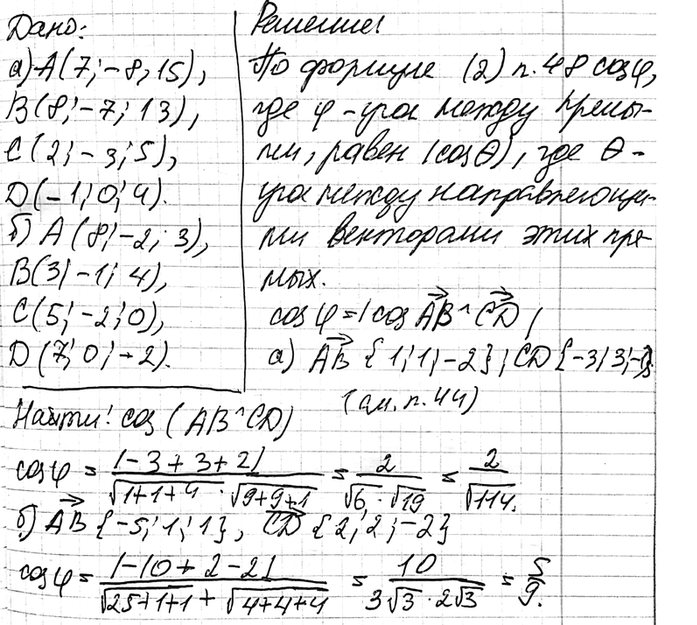 Дано:
а) A(7; -8; 15),
B(8; -7; 13),
C(2; -3; 5),
D(-1; 0; 4).
б) A(8; -2; 3),
B(3; -1; 4),
C(5; -2; 0),
D(7; 0; -2).
Найти: cos(AB^CD)
Решение:
По формуле (2) п. 48 cosφ,
где φ - угол между прямы-
ми, равен |cosθ|, где θ -
угол между направляющи-
ми векторами этих пря-
мых.
cosφ = |cos AB^CD|
а) AB {1; 1; -2}; CD {-3; 3; -1}
(см. п. 44)
cosφ = |-3+3+2| / √1+1+4 · √9+9+1 = 2 / √6 · √19 = 2 / √114.
б) AB {-5; 1; 1}, CD {2; 2; -2}
cosφ = |-10+2-2| / √25+1+1 + √4+4+4 = 10 / 3√3 · 2√3 = 5/9.